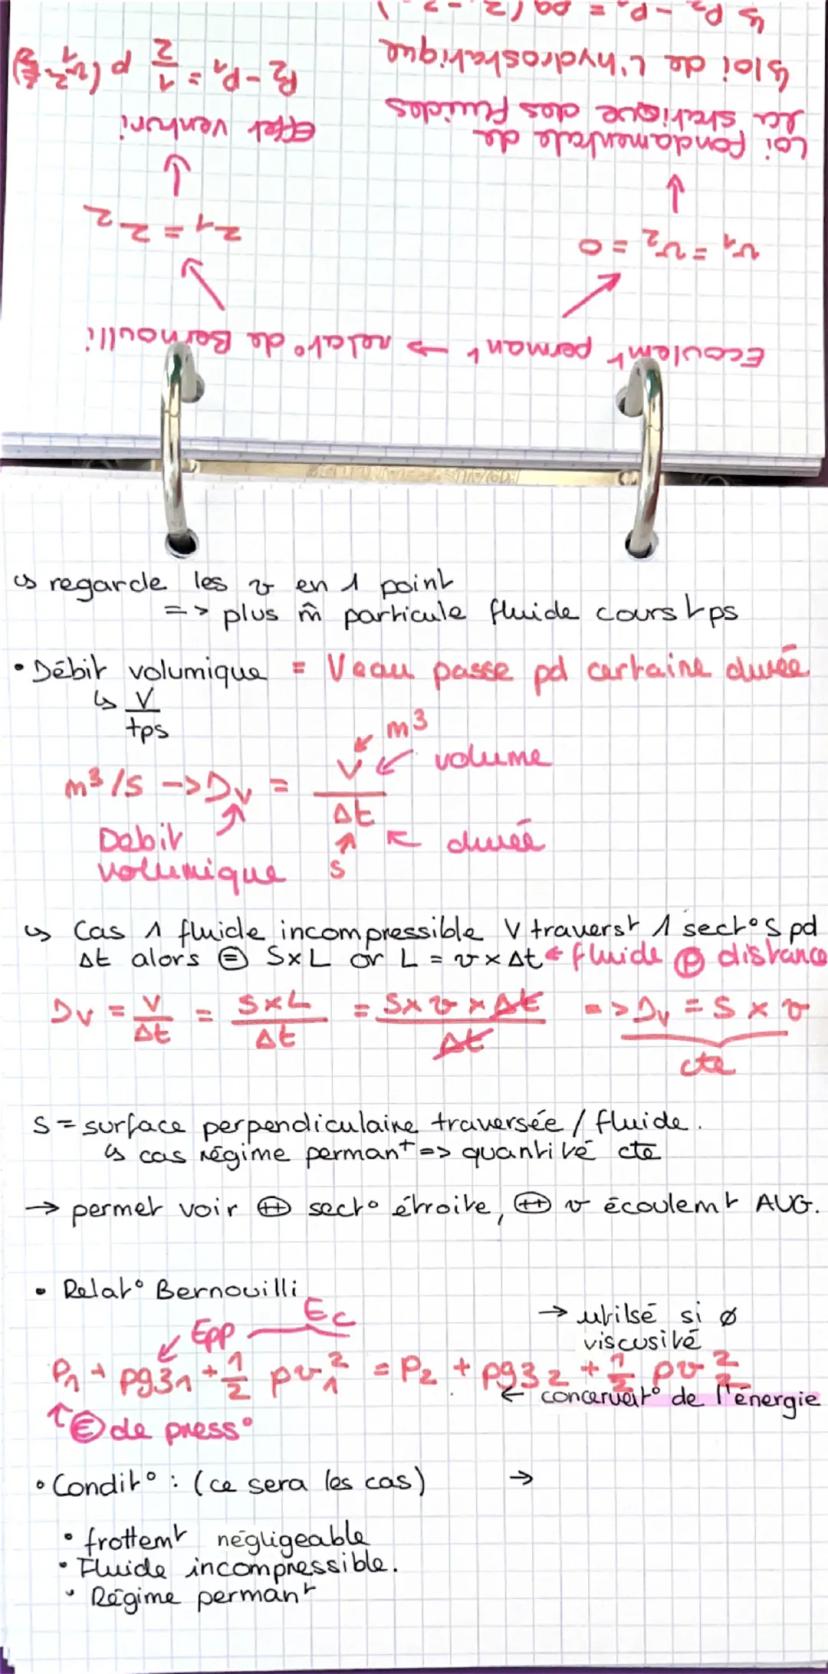 Ecoulemt permant → relat° de Bernoulli
v1 = v2 = 0
z1 = z2
Loi fondamentale de
la statique des fluides
↳ loi de l'hydrostatique
effet venturi
P2 - P1 = 1/2 ρ (v1² - v2²)
↳ regarde les v en 1 point
=> plus m̂ particule fluide cours tps
• Débit volumique = Veau passe pd certaine durée
↳ V/tps
m³
m³/s -> Dv = V/Δt
volume
Debit volumique
durée
s
↳ Cas 1 fluide incompressible V traverst 1 sect° S pd
Δt alors = S×L or L = v×Δt ← fluide p distance
Dv = V/Δt = S×L/Δt = S×v×Δt/Δt => Dv = S × v
cte
S = surface perpendiculaire traversée / fluide.
↳ cas régime permant => quantité cte
→ permet voir ++ sect° étroite, ++ v écoulemt AUG.
• Relat° Bernouilli
Epp
Ec
→ utilsé si ∅
viscosité
P1 + ρgz1 + 1/2 ρv1² = P2 + ρgz2 + 1/2 ρv2²
← concervat° de l'énergie
↑ E de press°
• Condit° : (ce sera les cas) →
• frottemt négligeable
• Fluide incompressible.
• Régime permant